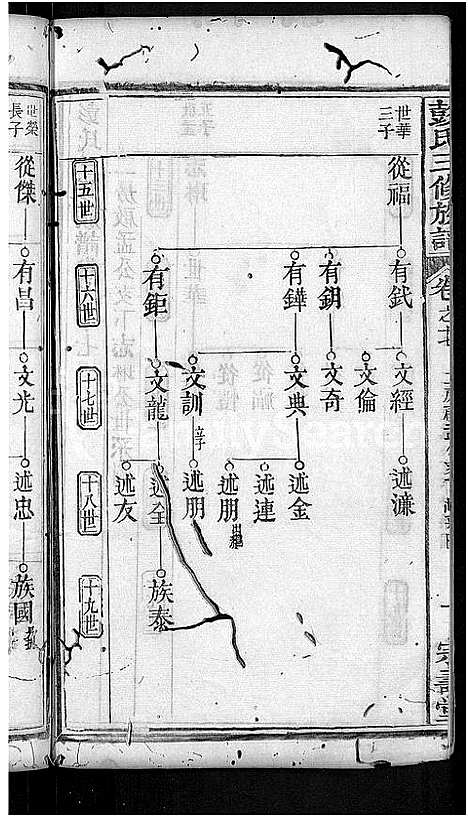 彭氏三修族譜
卷之
世華
三子
從福
有鉽
有鈅
有鏵
有鉅
文經
文倫
文奇
文典
文訓
文龍
述濂
述金
述連
述朋
出繼
述朋
述全
述友
族泰
十五世
十六世
十七世
十八世
十九世
世榮
長子
從傑
有昌
文光
述忠
族國